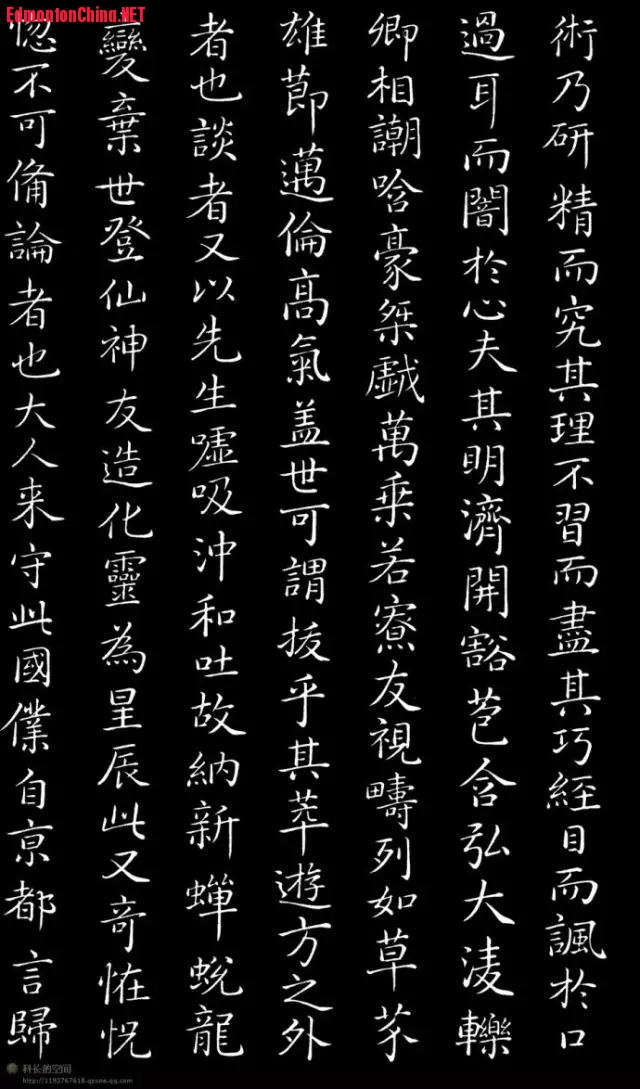 EdmontonChina.NET
術乃研精而究其理不習而盡其巧經目而諷於口
過耳而闇於心夫其明濟開豁苞含弘大淩轢
卿相謿哈豪桀戱萬乗若寮友視疇列如草芥
雄莭邁倫高氣盖世可謂拔乎其萃遊方之外
者也談者又以先生噓吸沖和吐故納新蟬蛻龍
變棄世登仙神友造化靈為星辰此又奇怪怳
惚不可備論者也大人来守此國僕自京都言歸
科长的空间
http://1193767618.qzone.qq.com